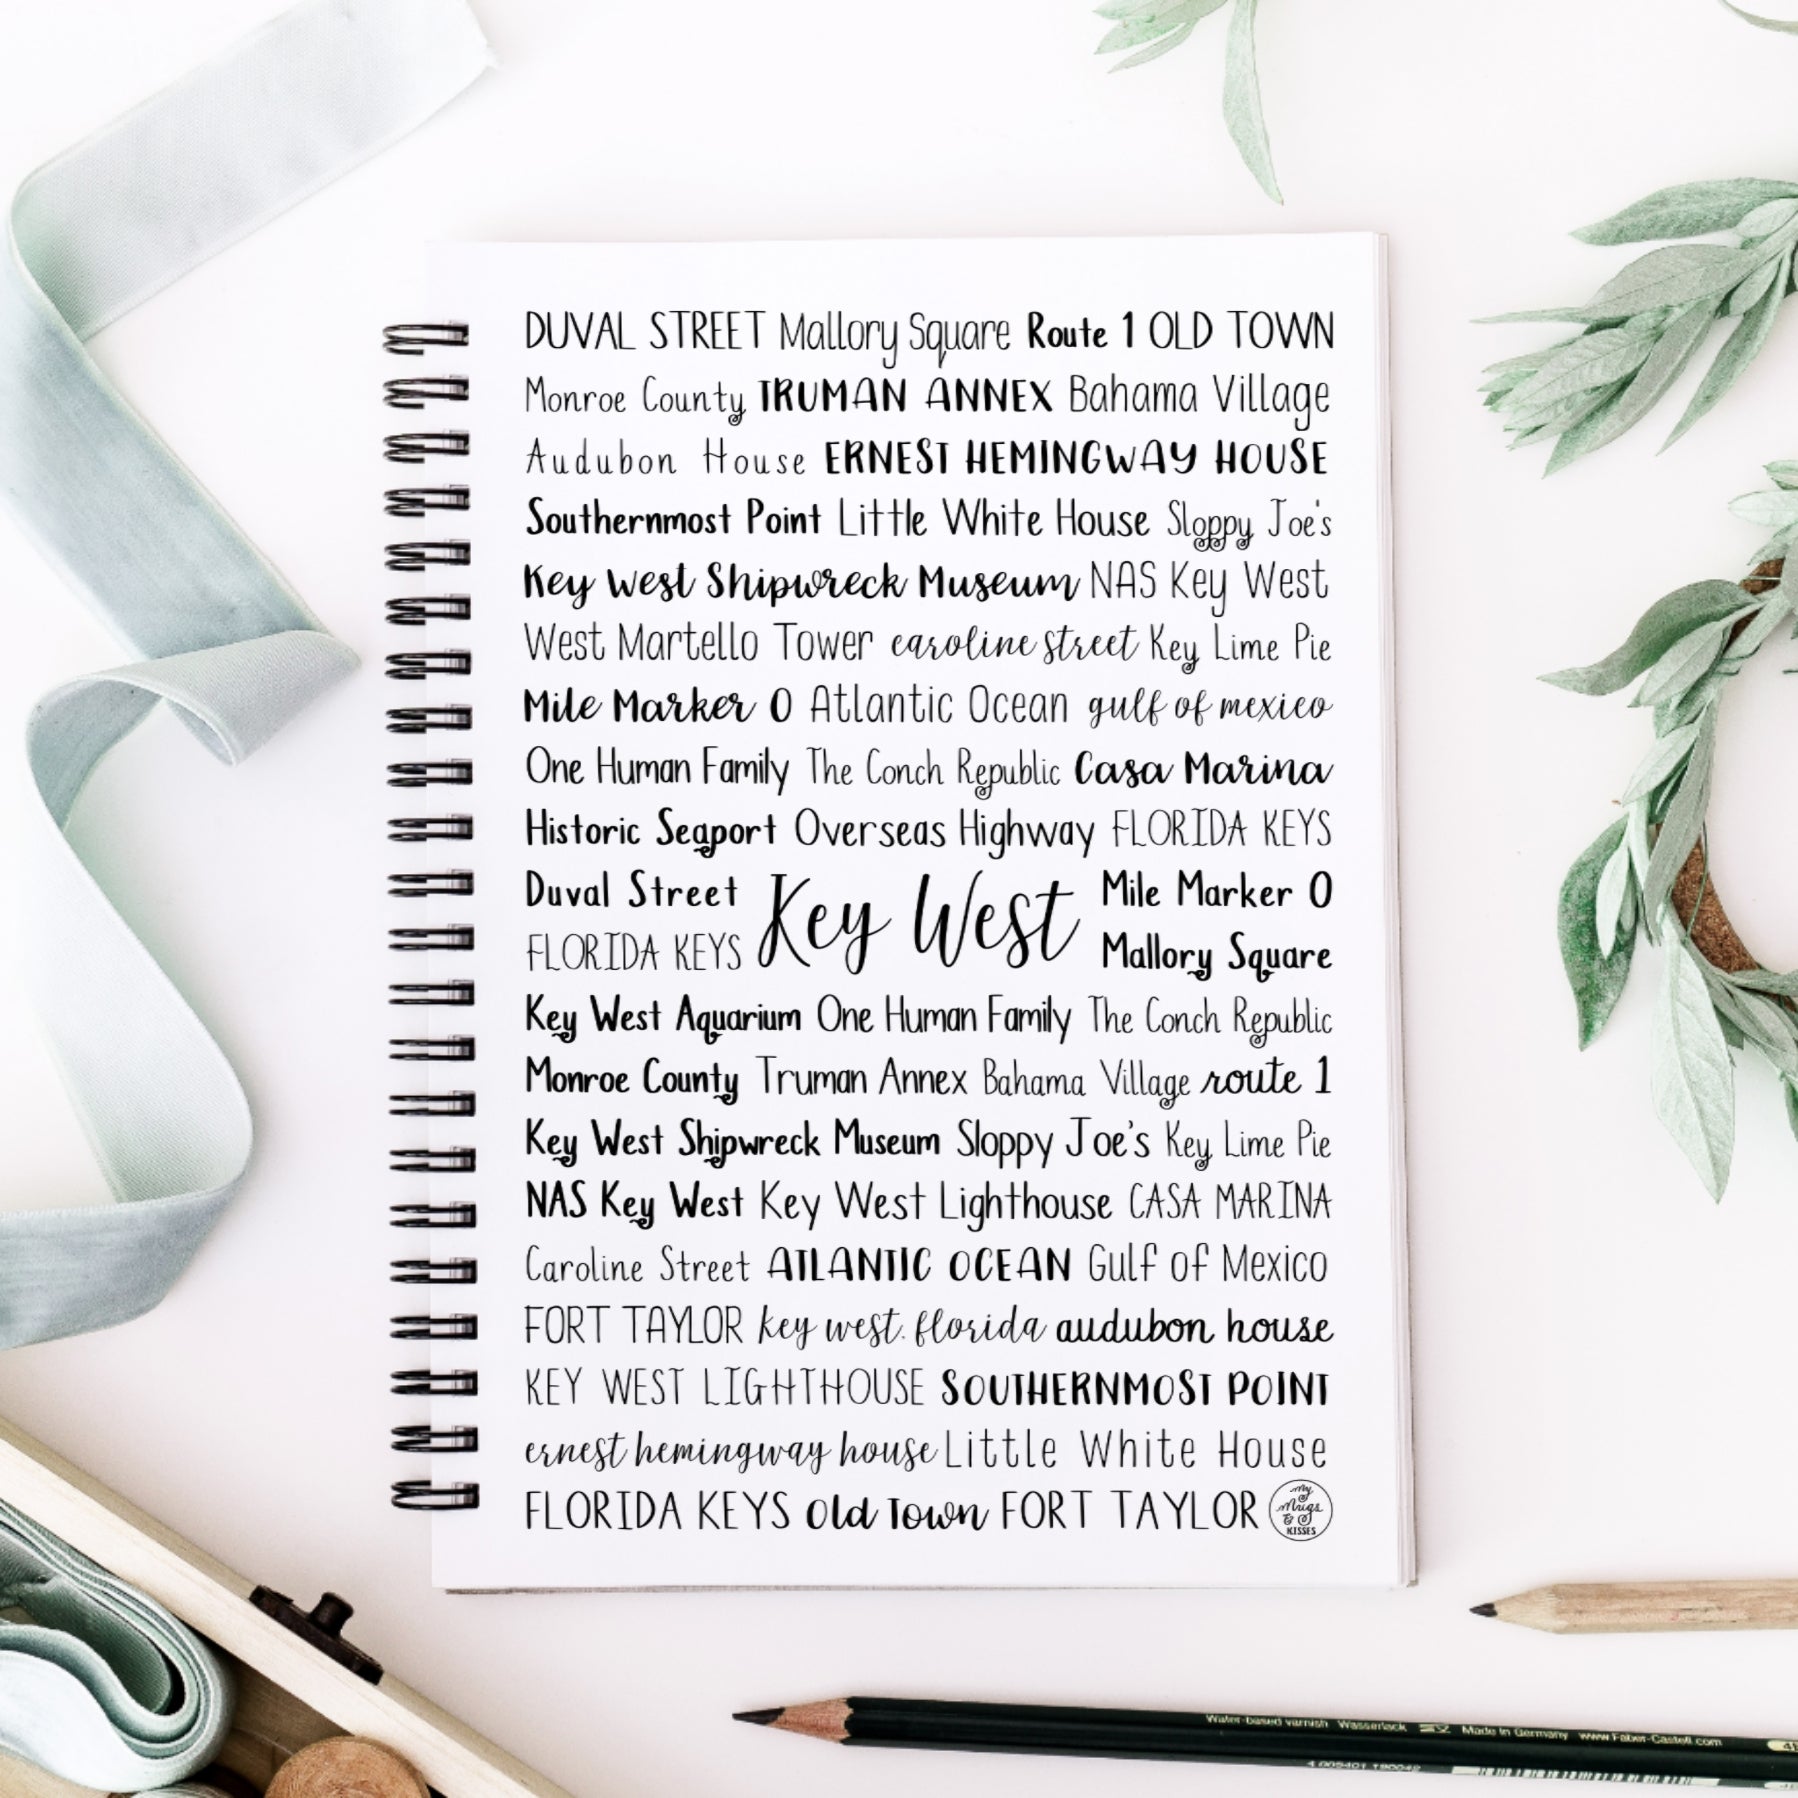 DUVAL STREET Mallory Square Route 1 OLD TOWN
Monroe County TRUMAN ANNEX Bahama Village
Audubon House ERNEST HEMINGWAY HOUSE
Southernmost Point Little White House Sloppy Joe's
Key West Shipwreck Museum NAS Key West
West Martello Tower caroline street Key Lime Pie
Mile Marker 0 Atlantic Ocean gulf of mexico
One Human Family The Conch Republic Casa Marina
Historic Seaport Overseas Highway FLORIDA KEYS
Duval Street Key West Mile Marker 0
FLORIDA KEYS Mallory Square
Key West Aquarium One Human Family The Conch Republic
Monroe County Truman Annex Bahama Village route 1
Key West Shipwreck Museum Sloppy Joe's Key Lime Pie
NAS Key West Key West Lighthouse CASA MARINA
Caroline Street ATLANTIC OCEAN Gulf of Mexico
FORT TAYLOR key west. florida audubon house
KEY WEST LIGHTHOUSE SOUTHERNMOST POINT
ernest hemingway house Little White House
FLORIDA KEYS Old Town FORT TAYLOR
My
Mugs
&
KISSES
Water-based varnish Wasserlack Made in Germany www.Faber-Castell.com
4 005401 190042